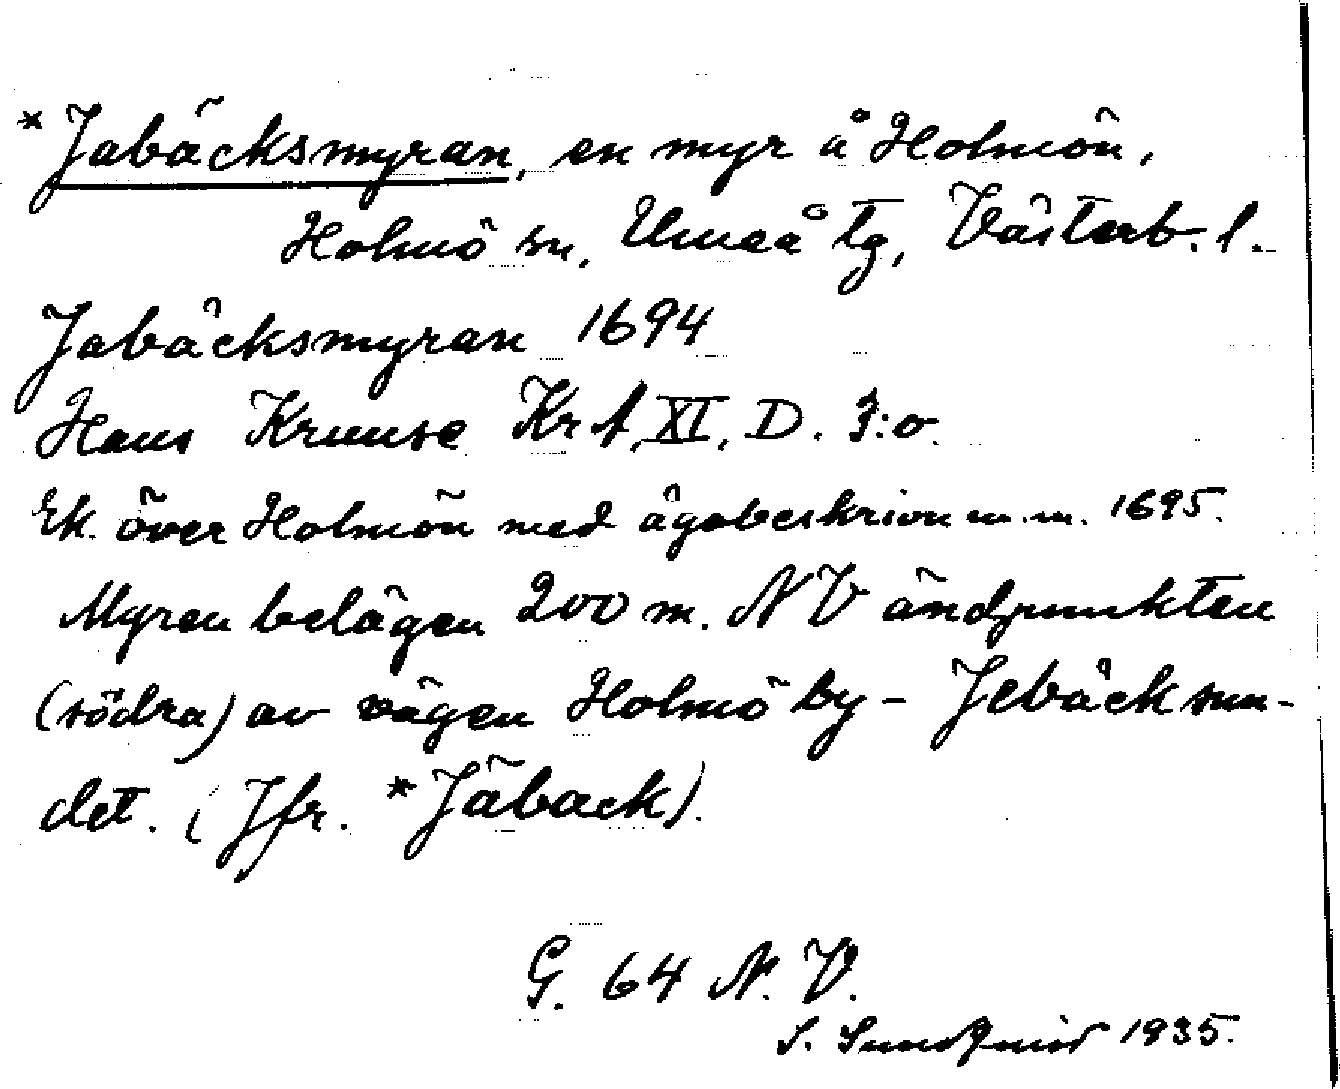 *Jabäcksmyran, en myr å Holmön,
Holmö sn, Umeå tg, Västerb. l.
Jabäcksmyran 1694
Hans Kruuse Krf XI, D. 3:o.
Ek. över Holmön med ägobeskrivn m.m. 1695.
Myren belägen 200 m. NV ändpunkten
(södra) av vägen Holmö by - Jebäcksun-
det. (Jfr. *Jäback).
G. 64 N. V.
S. 1935.